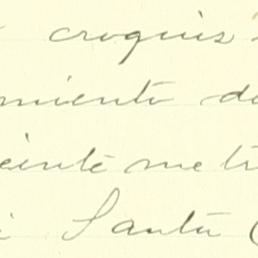 croquis
miento de
einte met
i Santa C